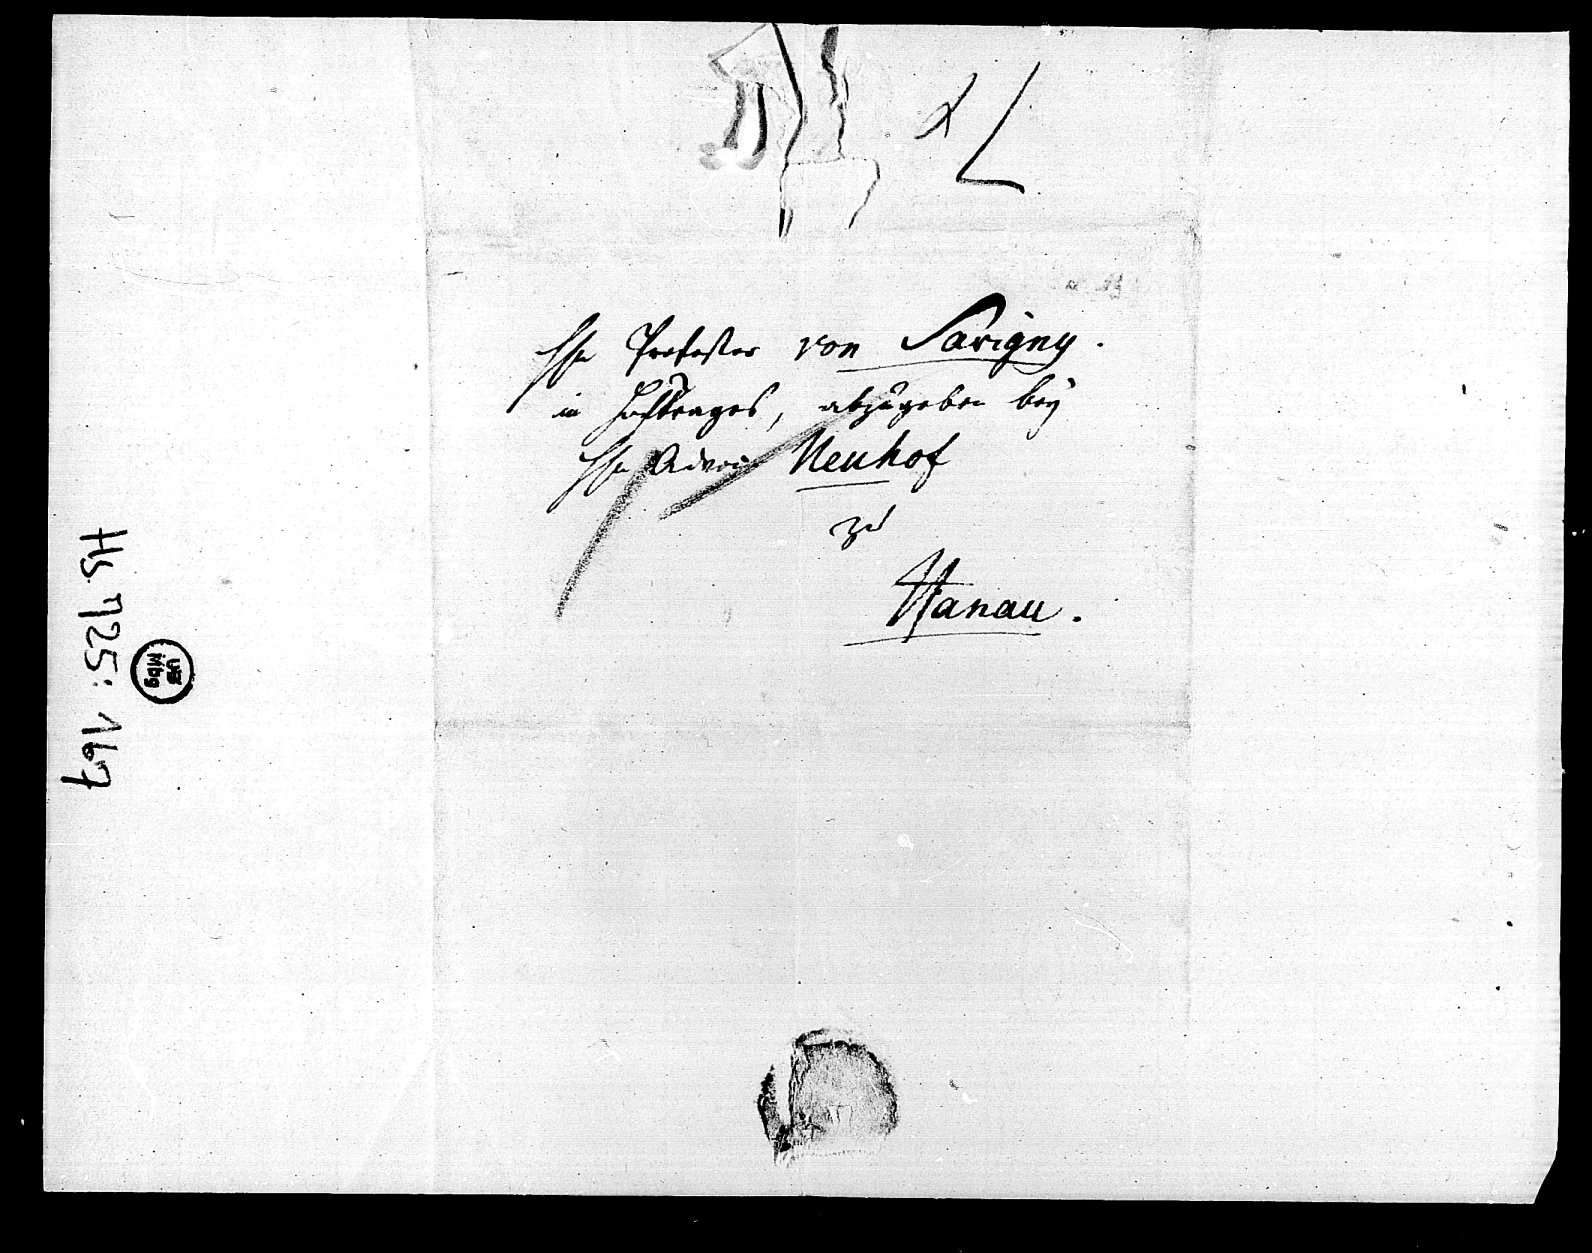 Hr Professor von Savigny.
in Hoftrages, abzugeben bey
Hr Advoc Neuhof
zu
Hanau.
Hs. 725: 167
UB
Mbg